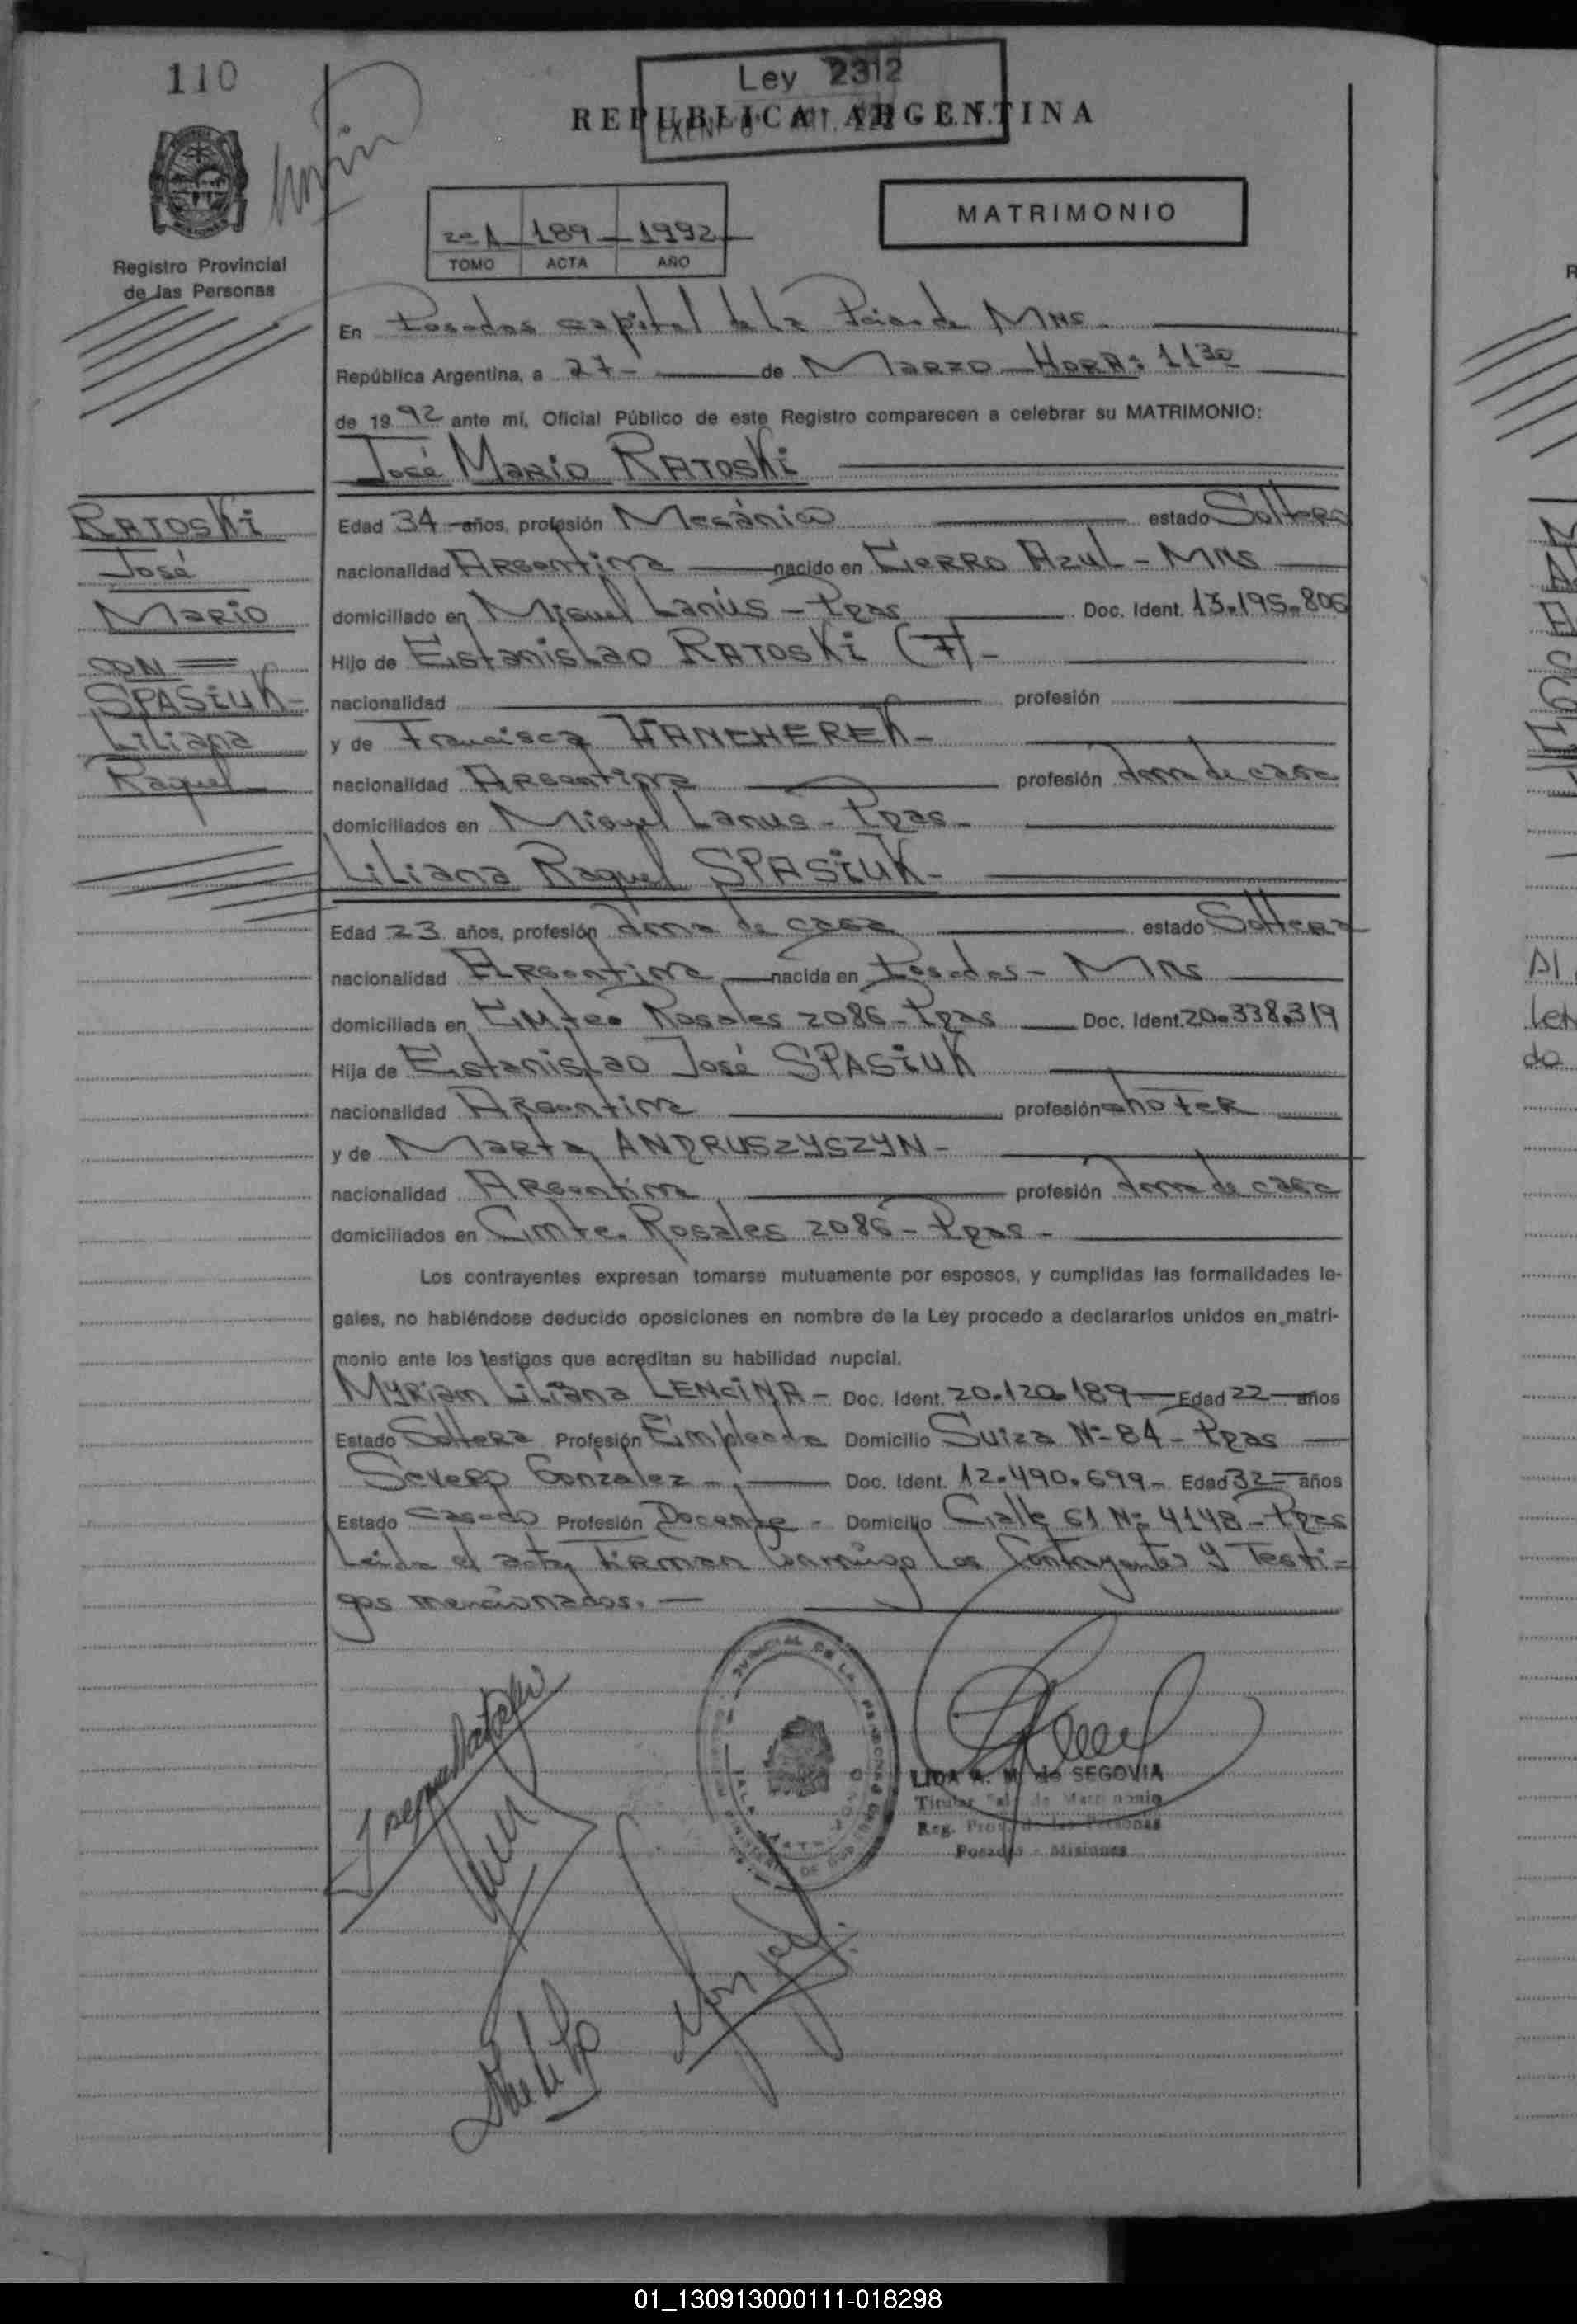 110
Ley 2312
REPUBLICA ARGENTINA
MATRIMONIO
2º A 189 1992
TOMO ACTA AÑO
Registro Provincial
de las Personas
En Posadas capital de la Pcia. de Mnes.
República Argentina, a 27- de Marzo Hora: 11³⁰
de 1992 ante mí, Oficial Público de este Registro comparecen a celebrar su MATRIMONIO:
José Mario RATOSKi
RATOSKi
José
Mario
CON =
SPASIUK-
Liliana
Raquel
Edad 34 años, profesión Mecánico estado Soltero
nacionalidad Argentina nacido en Cerro Azul - Mnes
domiciliado en Miguel Lanús - Pdas Doc. Ident. 13.195.806
Hijo de Estanislao RATOSKi (F)-
nacionalidad profesión
y de Francisca
nacionalidad Argentina profesión Ama de casa
domiciliados en Miguel Lanús - Pdas -
Liliana Raquel SPASIUK-
Edad 23 años, profesión Ama de casa estado Soltera
nacionalidad Argentina nacida en Posadas - Mnes
domiciliada en Cmte. Rosales 2086 - Pdas Doc. Ident. 20.338.319
Hija de Estanislao José SPASIUK
nacionalidad Argentina profesión chofer
y de Marta ANDRUSZYSZYN -
nacionalidad Argentina profesión Ama de casa
domiciliados en Cmte. Rosales 2086 - Pdas -
Los contrayentes expresan tomarse mutuamente por esposos, y cumplidas las formalidades le-
gales, no habiéndose deducido oposiciones en nombre de la Ley procedo a declararlos unidos en matri-
monio ante los testigos que acreditan su habilidad nupcial.
Myriam Liliana LENCINA - Doc. Ident. 20.120.189 Edad 22 años
Estado Soltera Profesión Empleada Domicilio Suiza Nº 84 - Pdas
Severo Gonzalez - Doc. Ident. 12.490.699 - Edad 32 años
Estado casado Profesión Docente - Domicilio Calle 61 Nº 4148 - Pdas
Leida el acta, firman conmigo los contrayentes y Testi-
gos mencionados. -
LIDA A. M. de SEGOVIA
Titular Sala de Matrimonio
Reg. Prov. de las Personas
Posadas - Misiones
01_130913000111-018298